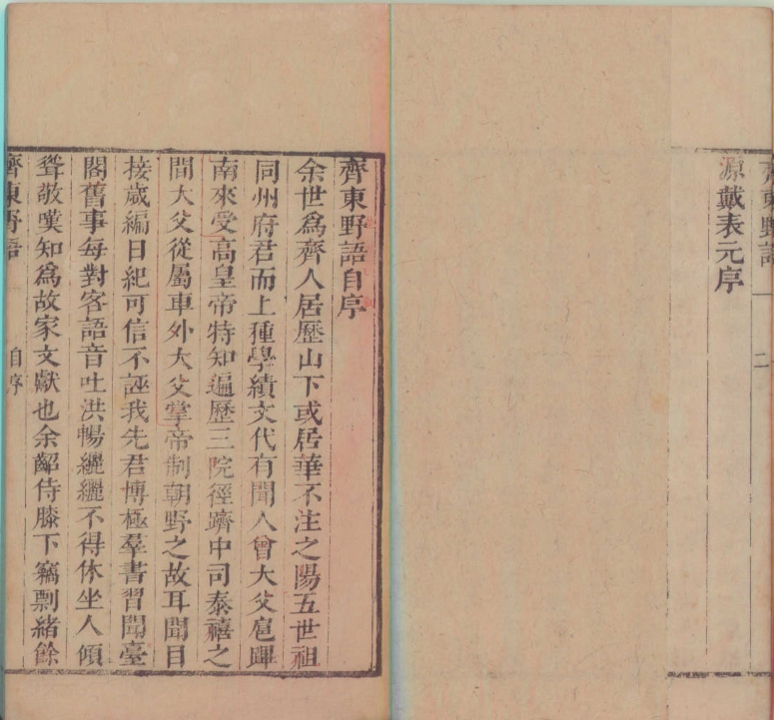 齊東野語
一
二
源戴表元序
齊東野語自序
余世爲齊人居歷山下或居華不注之陽五世祖
同州府君而上種學績文代有聞人曾大父扈蹕
南來受高皇帝特知遍歷三院徑躋中司泰禧之
間大父從屬車外大父掌帝制朝野之故耳聞目
接歲編日紀可信不誣我先君博極羣書習聞臺
閣舊事每對客語音吐洪暢纚纚不得休坐人傾
聳敬嘆知爲故家文獻也余齠侍膝下竊剽緒餘
齊東野語
自序